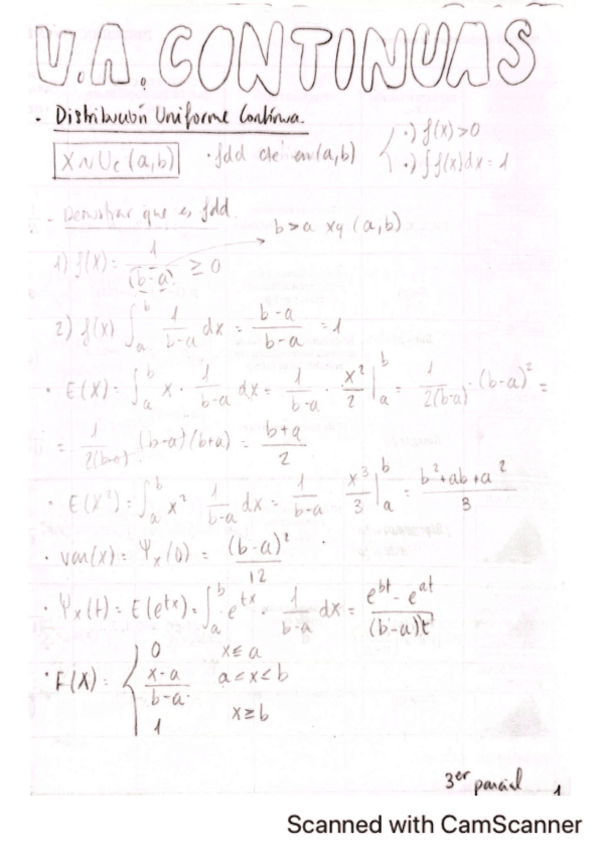 V.A. CONTINUAS
· Distribución Uniforme Contínua.
X ~ Uc (a,b) · fdd cte en (a,b) ·) f(x)>0
·) ∫f(x)dx = 1
- Demostrar que es fdd.
b>a xq (a,b)
1) f(x) = 1/(b-a) ≥ 0
2) f(x) ∫_a^b 1/(b-a) dx = (b-a)/(b-a) = 1
· E(X) = ∫_a^b x · 1/(b-a) dx = 1/(b-a) · x²/2 |_a^b = 1/(2(b-a)) · (b-a)² =
= 1/(2(b-a)) (b-a)(b+a) = (b+a)/2
· E(X²) = ∫_a^b x² 1/(b-a) dx = 1/(b-a) x³/3 |_a^b = (b²+ab+a²)/3
· var(x) = Ψx(0) = (b-a)²/12
· Ψx(t) = E(e^tx) = ∫_a^b e^tx · 1/(b-a) dx = (e^bt - e^at)/((b-a)t)
· F(X) = { 0 x≤a
(x-a)/(b-a) a<x<b
1 x≥b
3er parcial 1
Scanned with CamScanner